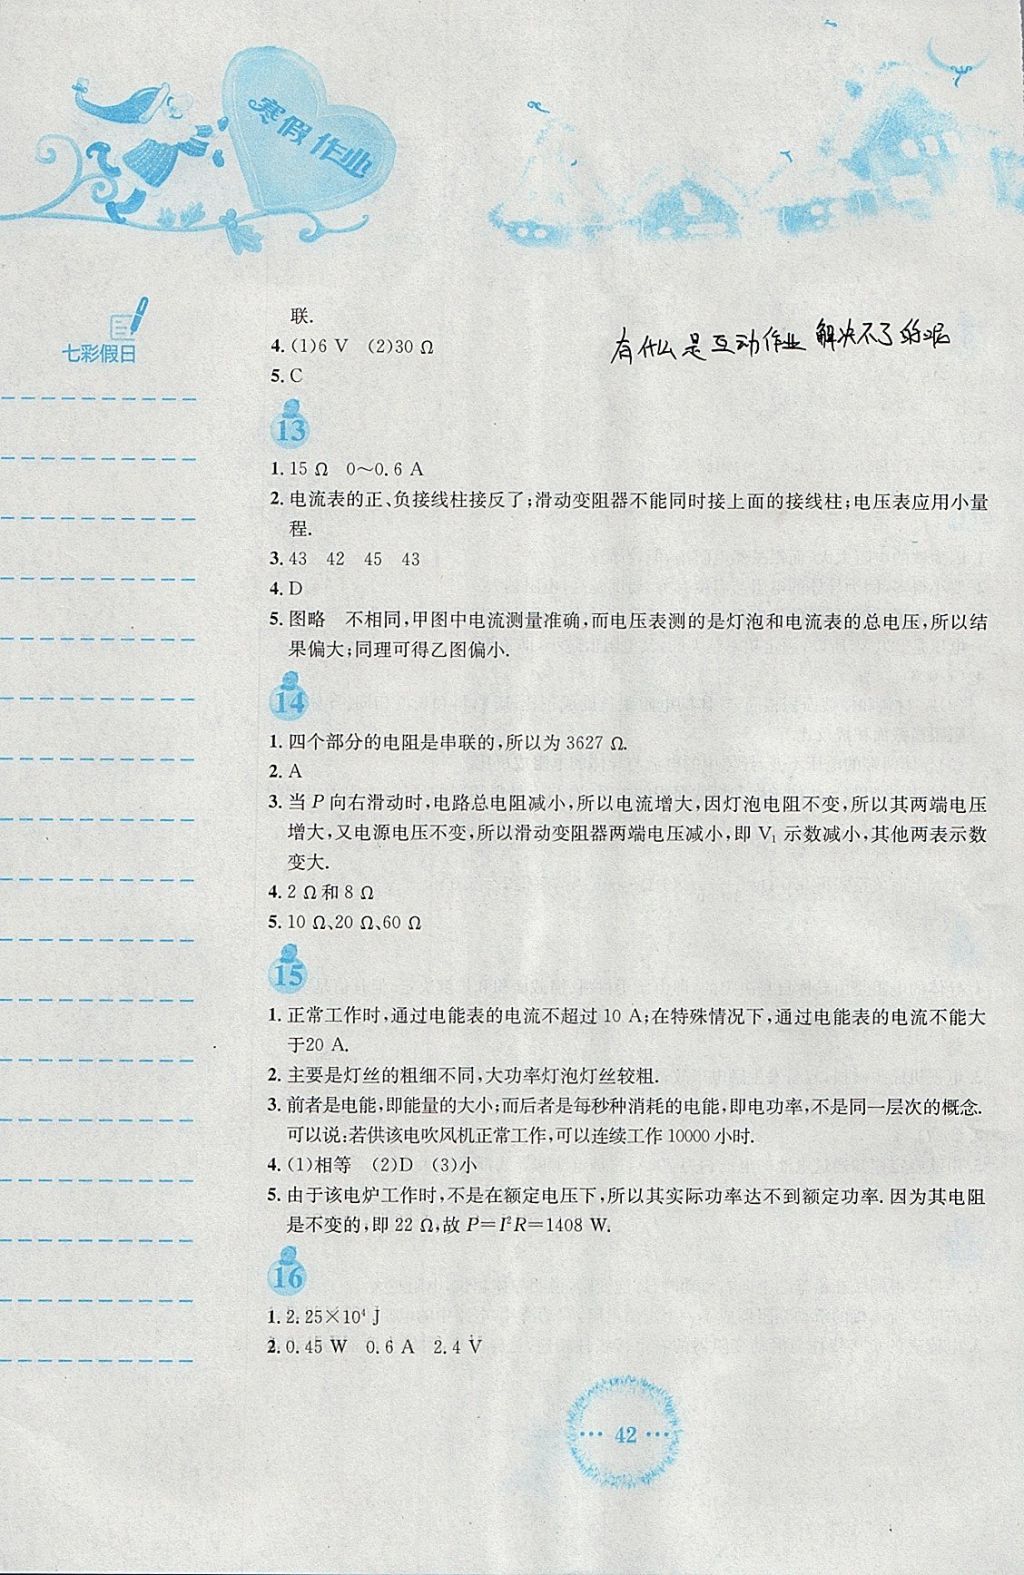 寒假作业
七彩假日
联.
4. (1)6 V (2)30 Ω
有什么是互动作业解决不了的呢
5. C
13
1. 15 Ω 0～0.6 A
2. 电流表的正、负接线柱接反了;滑动变阻器不能同时接上面的接线柱;电压表应用小量
程.
3. 43 42 45 43
4. D
5. 图略 不相同,甲图中电流测量准确,而电压表测的是灯泡和电流表的总电压,所以结
果偏大;同理可得乙图偏小.
14
1. 四个部分的电阻是串联的,所以为 3627 Ω.
2. A
3. 当 P 向右滑动时,电路总电阻减小,所以电流增大,因灯泡电阻不变,所以其两端电压
增大,又电源电压不变,所以滑动变阻器两端电压减小,即 V₁ 示数减小,其他两表示数
变大.
4. 2 Ω和 8 Ω
5. 10 Ω、20 Ω、60 Ω
15
1. 正常工作时,通过电能表的电流不超过 10 A;在特殊情况下,通过电能表的电流不能大
于20 A.
2. 主要是灯丝的粗细不同,大功率灯泡灯丝较粗.
3. 前者是电能,即能量的大小;而后者是每秒种消耗的电能,即电功率,不是同一层次的概念.
可以说:若供该电吹风机正常工作,可以连续工作 10000 小时.
4. (1)相等 (2)D (3)小
5. 由于该电炉工作时,不是在额定电压下,所以其实际功率达不到额定功率. 因为其电阻
是不变的,即 22 Ω,故 P=I²R=1408 W.
16
1. 2.25×10⁴ J
2. 0.45 W 0.6 A 2.4 V
··· 42 ···